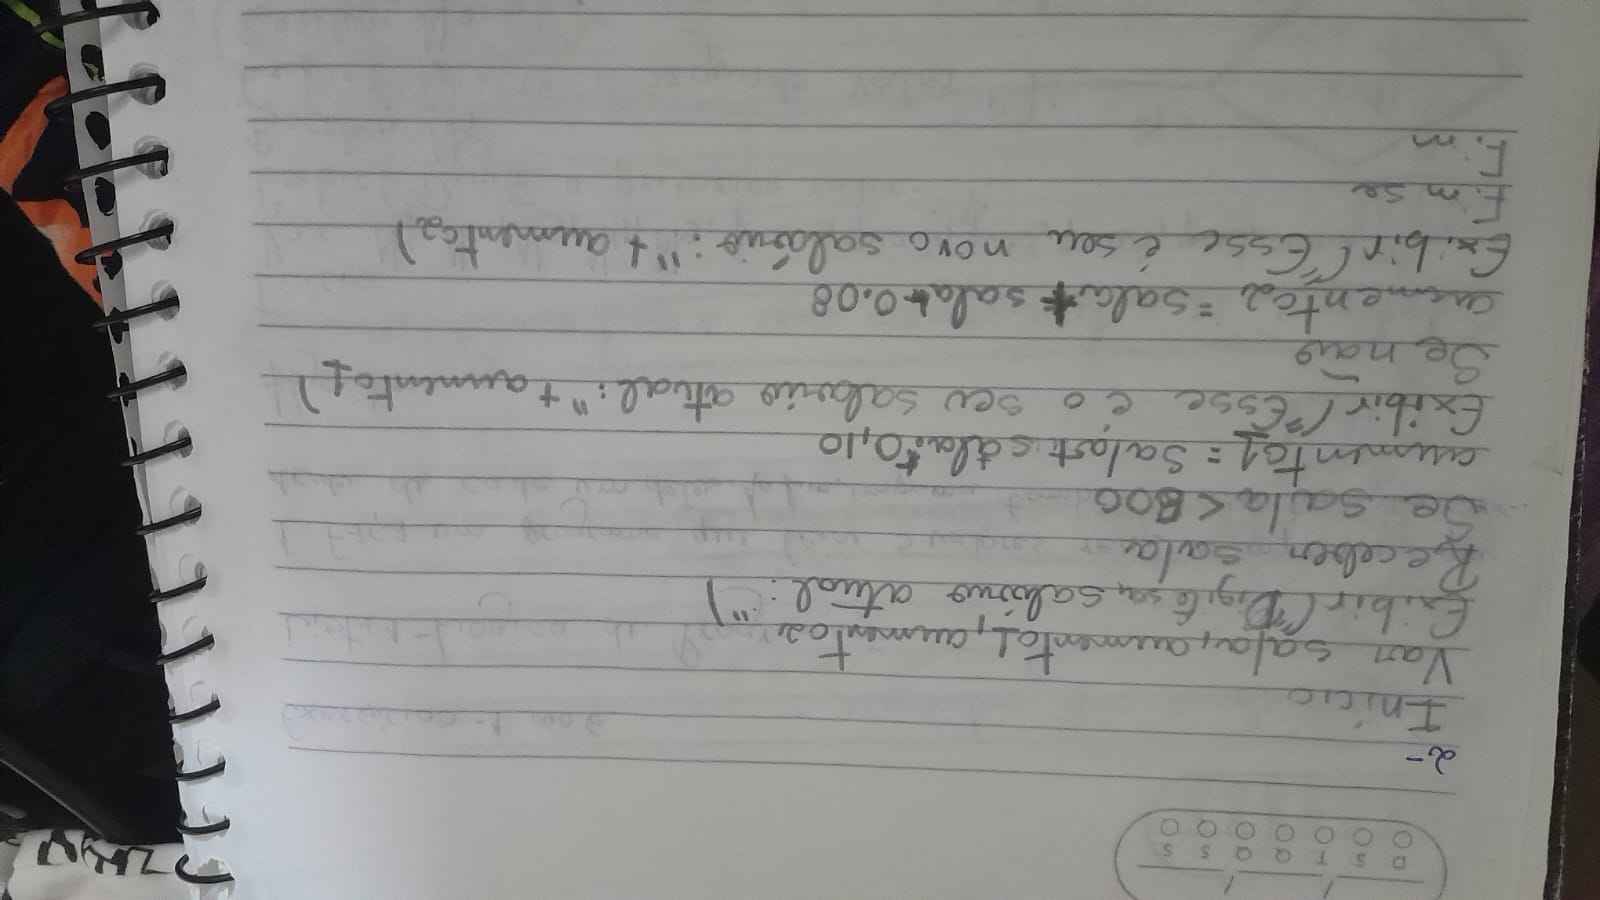 D S T Q Q S S
2-
Inicio
Var sala, aumento1, aumento2
Exibir ("Digite seu salário atual: ")
Receber sala
Se sala < 800
aumento1 = sala+ sala*0,10
Exibir ("Esse é o seu salario atual: " + aumento1)
Se não
aumento2 = sala + sala*0.08
Exibir ("Esse é seu novo salário: " + aumento2)
Fim se
Fim